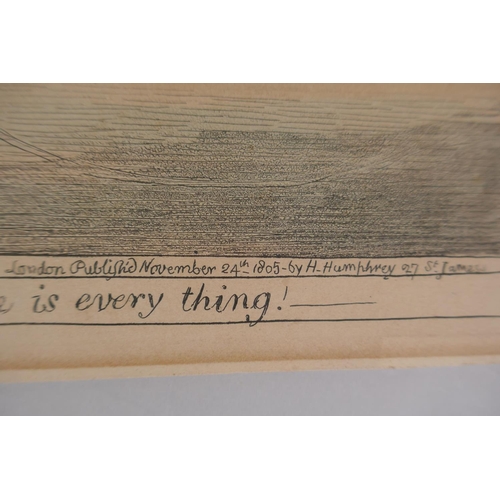 London Publish'd November 24th 1805 - by H. Humphrey 27 St. James
is every thing! —